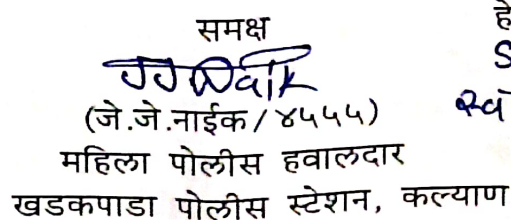 समक्ष
JJNaik
(जे.जे.नाईक/४५५५)
महिला पोलीस हवालदार
खडकपाडा पोलीस स्टेशन, कल्याण